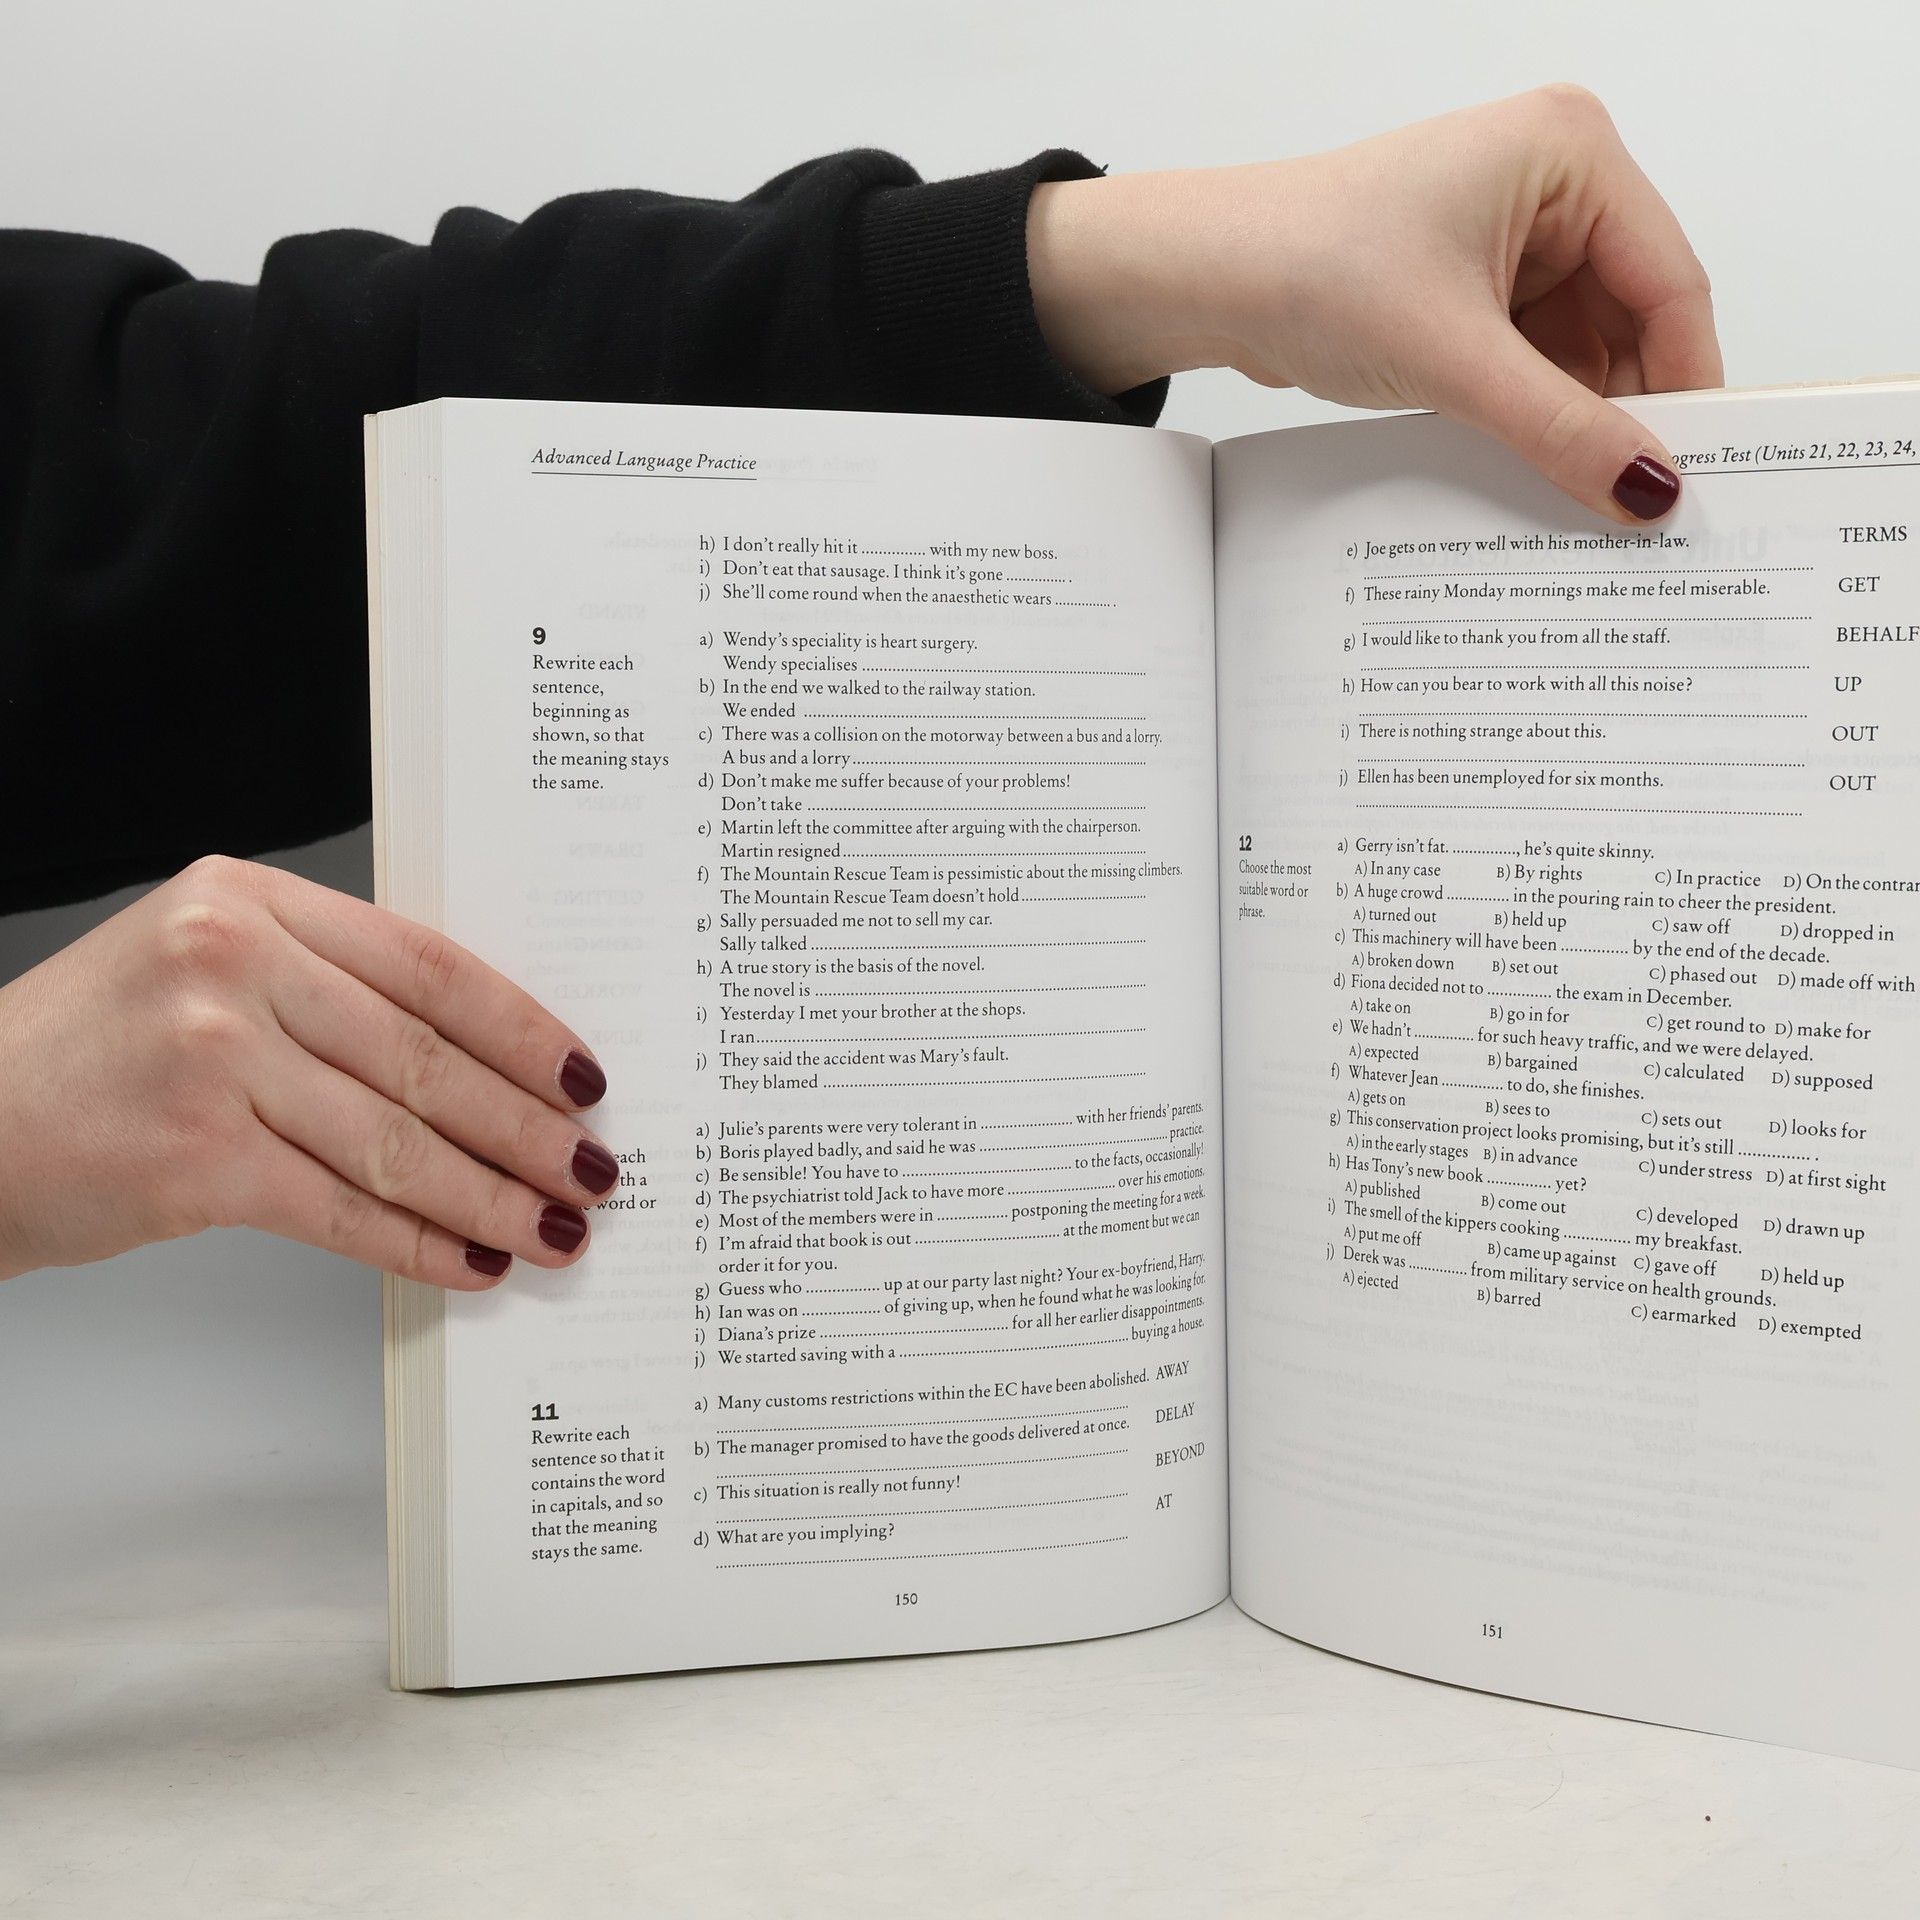 Advanced Language Practice
h) I don't really hit it ............... with my new boss.
i) Don't eat that sausage. I think it's gone ............... .
j) She'll come round when the anaesthetic wears ............... .
9
Rewrite each
sentence,
beginning as
shown, so that
the meaning stays
the same.
a) Wendy's speciality is heart surgery.
Wendy specialises ...............
b) In the end we walked to the railway station.
We ended ...............
c) There was a collision on the motorway between a bus and a lorry.
A bus and a lorry ...............
d) Don't make me suffer because of your problems!
Don't take ...............
e) Martin left the committee after arguing with the chairperson.
Martin resigned ...............
f) The Mountain Rescue Team is pessimistic about the missing climbers.
The Mountain Rescue Team doesn't hold ...............
g) Sally persuaded me not to sell my car.
Sally talked ...............
h) A true story is the basis of the novel.
The novel is ...............
i) Yesterday I met your brother at the shops.
I ran ...............
j) They said the accident was Mary's fault.
They blamed ...............
each
a
word or
a) Julie's parents were very tolerant in ............... with her friends' parents.
b) Boris played badly, and said he was ............... practice.
c) Be sensible! You have to ............... to the facts, occasionally!
d) The psychiatrist told Jack to have more ............... over his emotions.
e) Most of the members were in ............... postponing the meeting for a week.
f) I'm afraid that book is out ............... at the moment but we can
order it for you.
g) Guess who ............... up at our party last night? Your ex-boyfriend, Harry.
h) Ian was on ............... of giving up, when he found what he was looking for.
i) Diana's prize ............... for all her earlier disappointments.
j) We started saving with a ............... buying a house.
11
Rewrite each
sentence so that it
contains the word
in capitals, and so
that the meaning
stays the same.
a) Many customs restrictions within the EC have been abolished. AWAY
b) The manager promised to have the goods delivered at once. DELAY
c) This situation is really not funny! BEYOND
d) What are you implying? AT
150
Test (Units 21, 22, 23, 24,
e) Joe gets on very well with his mother-in-law. TERMS
f) These rainy Monday mornings make me feel miserable. GET
g) I would like to thank you from all the staff. BEHALF
h) How can you bear to work with all this noise? UP
i) There is nothing strange about this. OUT
j) Ellen has been unemployed for six months. OUT
12
Choose the most
suitable word or
phrase.
a) Gerry isn't fat. ..............., he's quite skinny.
A) In any case B) By rights C) In practice D) On the
b) A huge crowd ............... in the pouring rain to cheer the president.
A) turned out B) held up C) saw off D) dropped in
c) This machinery will have been ............... by the end of the decade.
A) broken down B) set out C) phased out D) made off with
d) Fiona decided not to ............... the exam in December.
A) take on B) go in for C) get round to D) make for
e) We hadn't ............... for such heavy traffic, and we were delayed.
A) expected B) bargained C) calculated D) supposed
f) Whatever Jean ............... to do, she finishes.
A) gets on B) sees to C) sets out D) looks for
g) This conservation project looks promising, but it's still ............... .
A) in the early stages B) in advance C) under stress D) at first sight
h) Has Tony's new book ............... yet?
A) published B) come out C) developed D) drawn up
i) The smell of the kippers cooking ............... my breakfast.
A) put me off B) came up against C) gave off D) held up
j) Derek was ............... from military service on health grounds.
A) ejected B) barred C) earmarked D) exempted
151